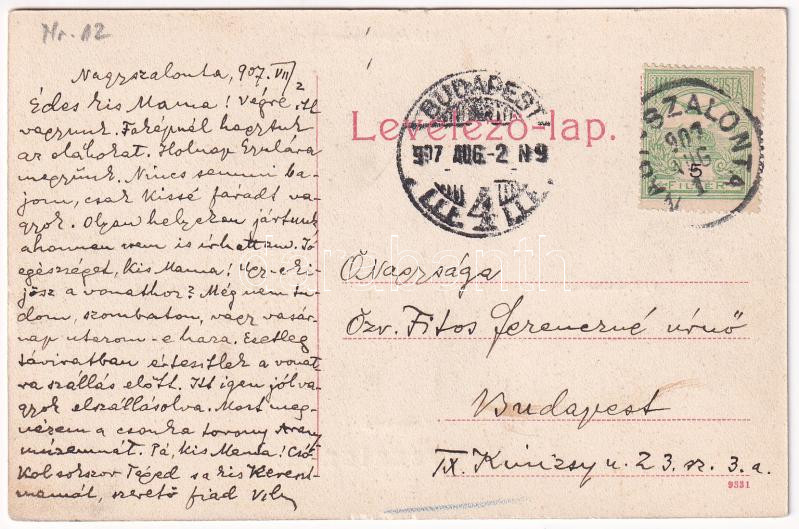 Nr. 12
Nagyszalonta, 907. VII/2
Édes kis Mama! Végre itt
vagyunk. Faképnél hagytuk
az oláhokat. Holnap Gyulára
megyünk. Nincs semmi ba-
jom, csak kissé fáradt va-
gyok. Olyan helyeken jártunk
ahonnan nem is írhattam. Jó
egészséget, kis Mama! ki-
jösz a vonathoz? Még nem tu-
dom, szombaton, vagy vasár-
nap utazom-e haza. Esetleg
táviratban értesitlek a vonat
ra szállás előtt. Itt igen jól va-
gyok elszállásolva. Most meg-
nézem a csonka torony Arany
múzeumát. Pá, kis Mama! Csó-
kol sokszor Téged s a kis Kereszt-
mamát, szerető fiad
Levelező-lap.
BUDAPEST
907 AUG-2 N9
4
MAGYAR KIR. POSTA
NAGY-SZALONTA
907 AUG 1
5
FILLÉR
darabanth
Őnagysága
Özv. Fitos Ferenczné úrnő
Budapest
IX. Kinizsy u. 23. sz. 3. a.
9331